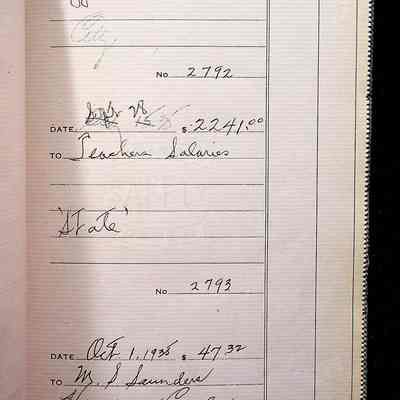 City
No 2792
DATE Sept 28 $ 2241.00
TO Teachers Salaries
'State'
No 2793
DATE Oct 1, 1935 $ 47 32
TO M. S Saunders